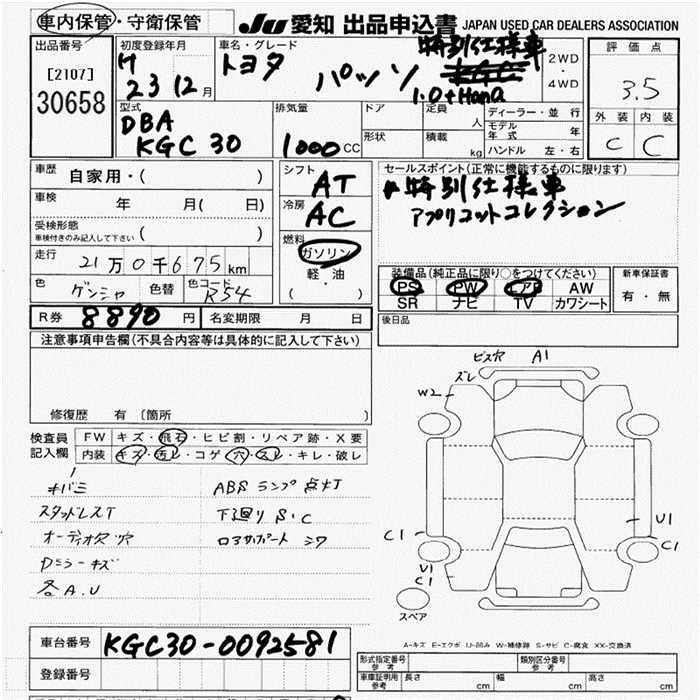 車内保管・守衛保管
JU 愛知 出品申込書 JAPAN USED CAR DEALERS ASSOCIATION
出品番号
[2107]
30658
初度登録年月
H
23 12月
車名・グレード
トヨタ パッソ
特別仕様車
1.0+Hana
2WD
・
4WD
評価点
3.5
外装 内装
C C
型式
DBA
KGC30
排気量
1000CC
ドア
形状
定員 人
積載 kg
ディーラー・並行
モデル年式 年
ハンドル 左・右
車歴 自家用・( )
車検 年 月( 日)
受検形態
車検付きのみ記入して下さい ( )
走行 21万0千675km
色 ゲンシャ 色替 色コード R54
シフト
AT
冷房
AC
燃料
ガソリン
・
軽油
( )
セールスポイント(正常に機能するものに限ります)
特別仕様車
アプリコットコレクション
装備品(純正品に限り○をつけてください)
PS PW エアB AW
SR ナビ TV カワシート
新車保証書
有・無
後日品
R券 8890円 名変期限 月 日
注意事項申告欄(不具合内容等は具体的に記入して下さい)
修復歴 有〔箇所 〕
検査員
記入欄
FW キズ・飛石・ヒビ割・リペア跡・X要
内装 キズ・汚レ・コゲ・穴・スレ・キレ・破レ
キバミ
スタッドレスT
オーディオ穴
Dミラーキズ
各A.U
ABSランプ点灯
下廻りS・C
ロアサポートシワ
ビス穴 A1
ズレ
W2
C1
V1
C1
U1
C1
スペア
A=キズ E=エクボ U=凹み W=補修跡 S=サビ C=腐食 XX=交換済
車台番号 KGC30-0092581
登録番号
形式指定番号
参考
類別区分番号
参考
車庫証明用
参考
長さ cm
幅 cm
高さ cm